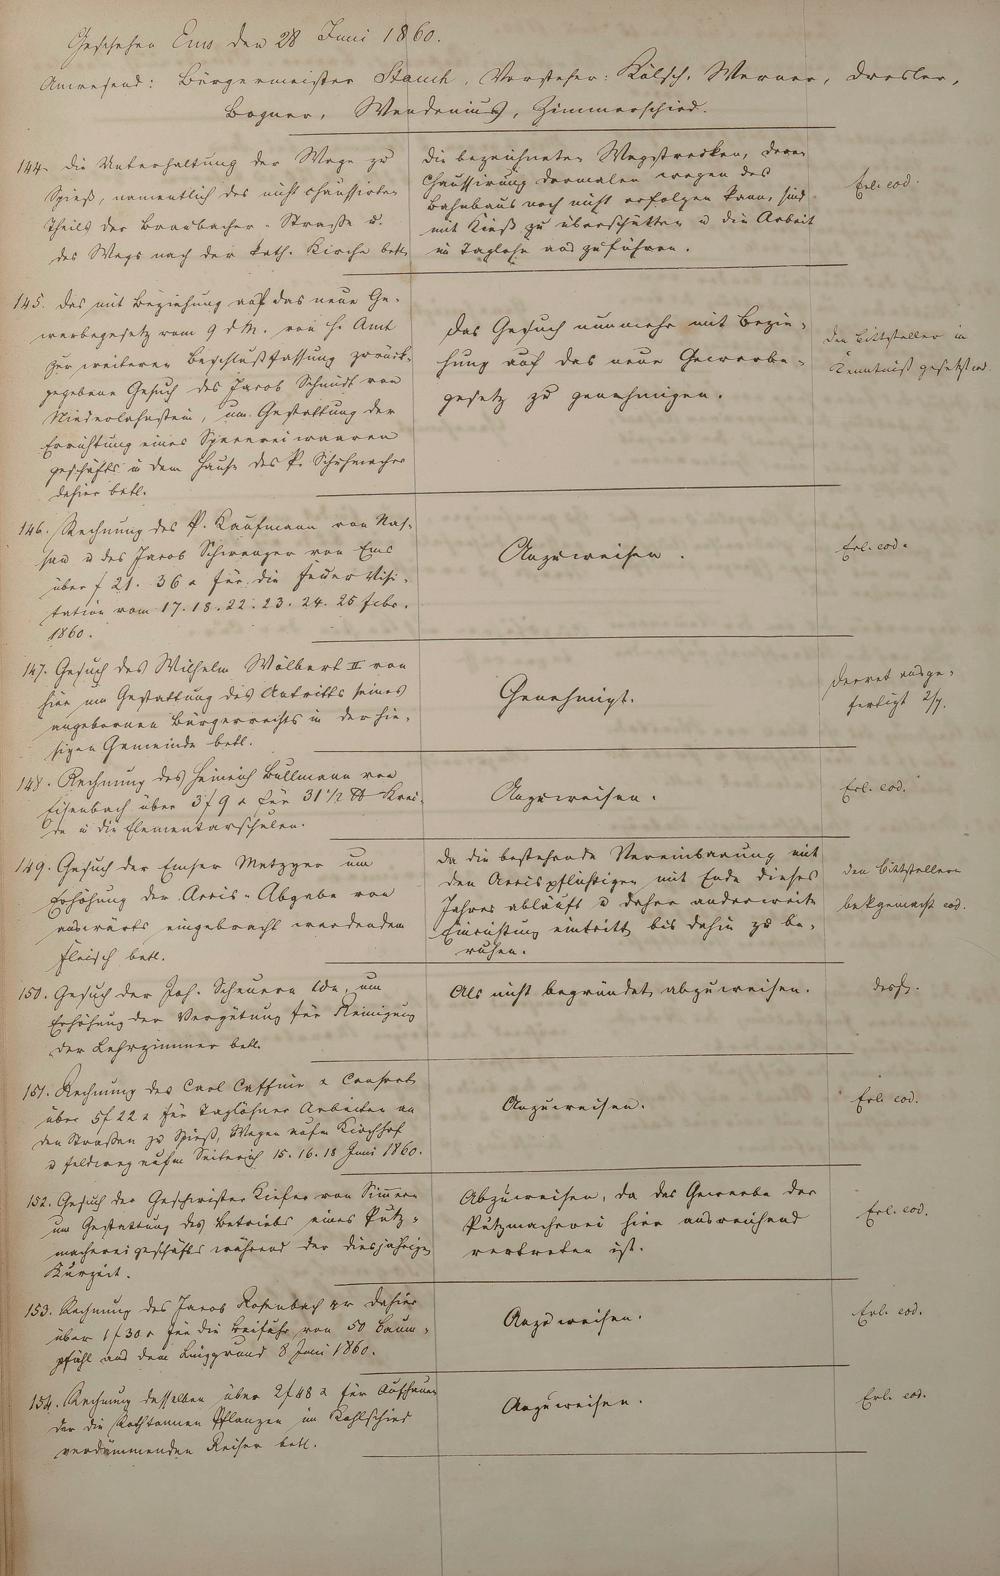 Geschehen Ems den 28 Juni 1860.
Anwesend: Bürgermeister Stauch, Vorsteher: Kölsch, Werner, Dresler,
Bogner, Wendenius, Zimmerschied.
144. die Unterhaltung der Wege zu
Spieß, namentlich des nicht chaussirten
Theils der Braubacher-Straße u.
des Wegs nach der kath. Kirche betr.
die bezeichneten Wegstrecken, deren
Chaussirung dermalen wegen des
Bahnbaus noch nicht erfolgen kann, sind
mit Kieß zu überschütten u die Arbeit
im Taglohn auszuführen.
Erl. eod.
145. das mit Beziehung auf das neue Ge-
werbegesetz vom 9 d M. von h. Amt
zur weiteren Beschlußfassung zurück-
gegebene Gesuch des Jacob Schmidt von
Niederlahnstein, um Gestattung der
Errichtung eines Spezereiwaaren
geschäfts in dem Hause des P. Schuhmacher
dahier betl.
das Gesuch nunmehr mit Bezie-
hung auf das neue Gewerbe-
gesetz zu genehmigen.
den Bittsteller in
Kenntniß gesetzt eod.
146. Rechnung des P. Kaufmann von Nas-
sau u des Jacob Schwenger von Ems
über f 21. 36 x für die Feuer Visi-
tation vom 17. 18. 22. 23. 24. 25 Febr.
1860.
Anzuweisen.
Erl. eod.
147. Gesuch des Wilhelm Wölbert II von
hier um Gestattung des Antritts seines
angebornen Bürgerrechts in der hie-
sigen Gemeinde betl.
Genehmigt.
Decret ausge-
fertigt 2/7.
148. Rechnung des Heinrich Bullmann von
Eisenbach über 3 f 9 x für 31 1/2 ℔ Krei-
de in die Elementarschulen.
Anzuweisen.
Erl. eod.
149. Gesuch der Emser Metzger um
Erhöhung der Accis-Abgabe von
auswärts eingebracht werdendem
Fleisch betl.
Da die bestehende Vereinbarung mit
den Accispflichtigen mit Ende dieses
Jahres abläuft u daher anderweite
Einrichtung eintritt, bis dahin zu be-
ruhen.
den Bittstellern
bekgemacht eod.
150. Gesuch der Joh. Scheuern Wwe, um
Erhöhung der Vergütung für Reinigung
der Lehrzimmer betl.
Als nicht begründet abzuweisen.
desgl.
151. Rechnung des Carl Caffine & Consort
über 5 f 22 x für Taglöhner Arbeiten an
den Straßen zu Spieß, Wegen aufm Kirchhof
u Feldweg aufm 15. 16. 18 Juni 1860.
Anzuweisen.
Erl. eod.
152. Gesuch der Geschwister Kiefer von Simmern
um Gestattung des Betriebs eines Putz-
machereigeschäfts während der diesjährigen
Kurzeit.
Abzuweisen, da das Gewerbe der
Putzmacherei hier ausreichend
vertreten ist.
Erl. eod.
153. Rechnung des Jacob Rosenbach dahier
über 1 f 30 x für die Beifuhr von 50 Baum-
pfähl aus dem 8 Juni 1860.
Anzuweisen.
Erl. eod.
154. Rechnung desselben über 2 f 48 x für Aushauen
der die Rothtannen Pflanzen im Kohlschied
verdämmenden Reiser betl.
Anzuweisen.
Erl. eod.